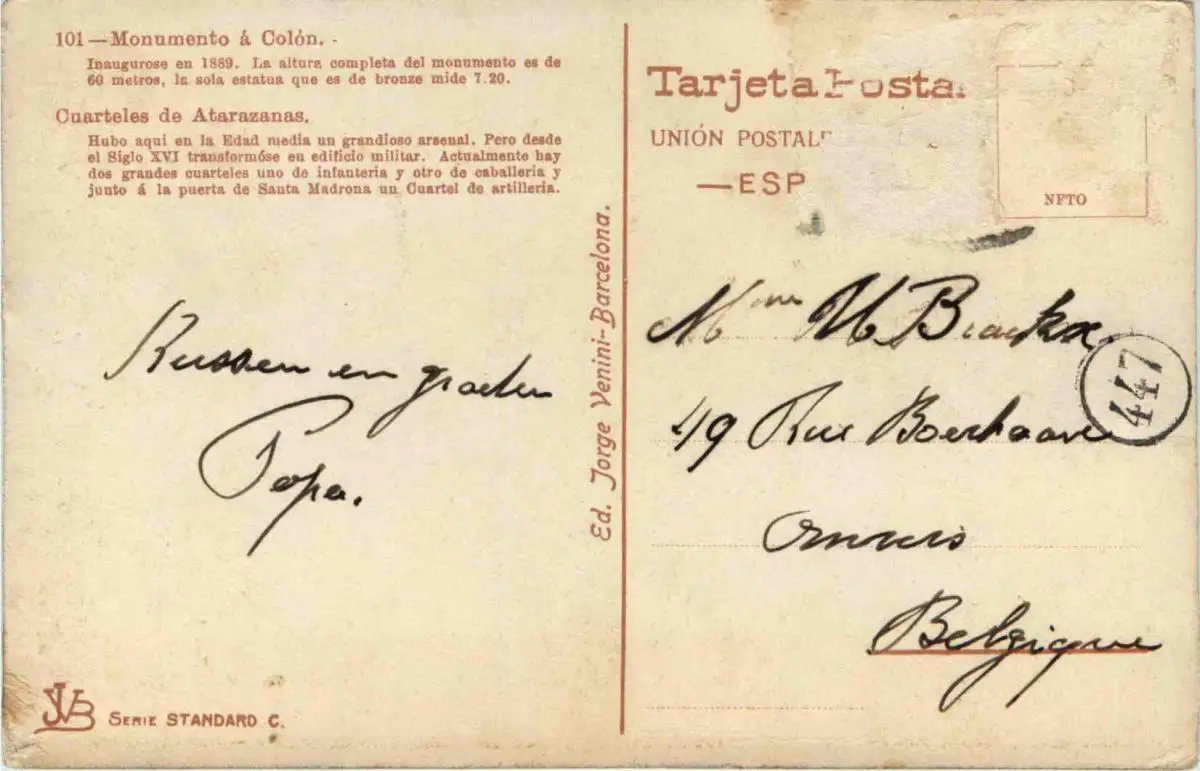 101 — Monumento á Colón. -
Inaugurose en 1889. La altura completa del monumento es de
60 metros, la sola estatua que es de bronze mide 7.20.
Cuarteles de Atarazanas.
Hubo aqui en la Edad media un grandioso arsenal. Pero desde
el Siglo XVI transformóse en edificio militar. Actualmente hay
dos grandes cuarteles uno de infanteria y otro de caballeria y
junto á la puerta de Santa Madrona un Cuartel de artilleria.
Kussen en groeten
Papa.
JVB SERIE STANDARD C.
Ed. Jorge Venini-Barcelona.
Tarjeta Posta
UNIÓN POSTAL
—ESP
NFTO
Mme M Brackx
447
49 Rue Boerhaave
Anvers
Belgique